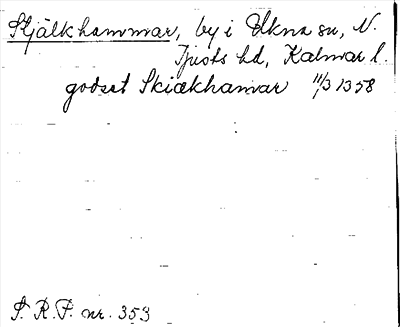 Skjälkhammar, by i Ukna sn, N.
Tjusts hd, Kalmar l.
godset Skiælkhamar 11/3 1358
S. R. P. nr. 353